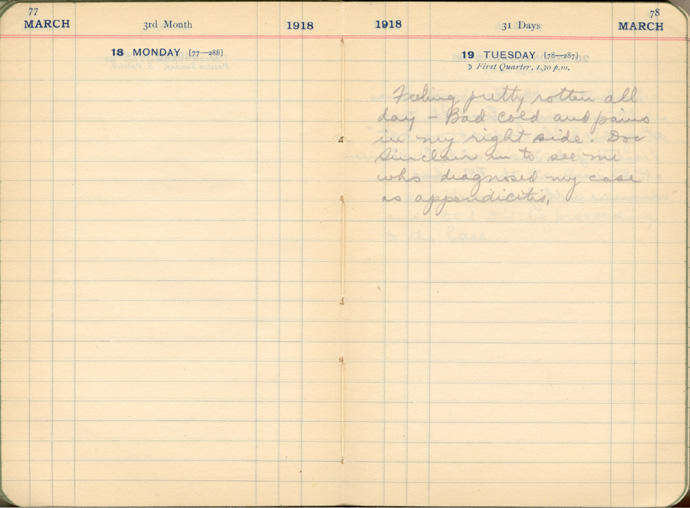 77
MARCH
3rd Month
1918
18 MONDAY [77—288]
1918
31 Days
78
MARCH
19 TUESDAY [78—287]
☽ First Quarter, 1.30 p.m.
Feeling pretty rotten all
day – Bad cold and pains
in my right side. Doc
Sinclair in to see me
who diagnosed my case
as appendicitis.